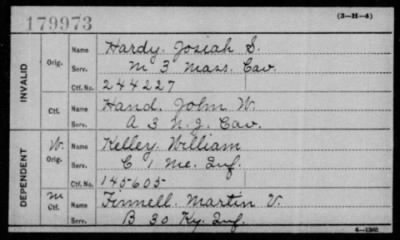 179973
(3—H—4)
INVALID
Orig.
Name Hardy, Josiah S.
Serv. M 3 Mass. Cav.
Ctf. No. 244227
Ctf.
Name Hand, John W.
Serv. A 3 N.J. Cav.
DEPENDENT
W. Orig.
Name Kelley, William
Serv. C 1 Me. Inf.
Ctf. No. 145605
M Ctf.
Name Finnell, Martin V.
Serv. B 30 Ky. Inf.